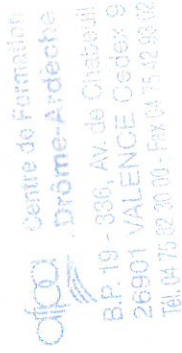 afpa
Centre de Formation
Drôme-Ardèche
B.P. 19 - 336, Av. de Chabeuil
26901 VALENCE Cedex 9
Tél. 04 75 82 30 00 - Fax 04 75 42 93 02